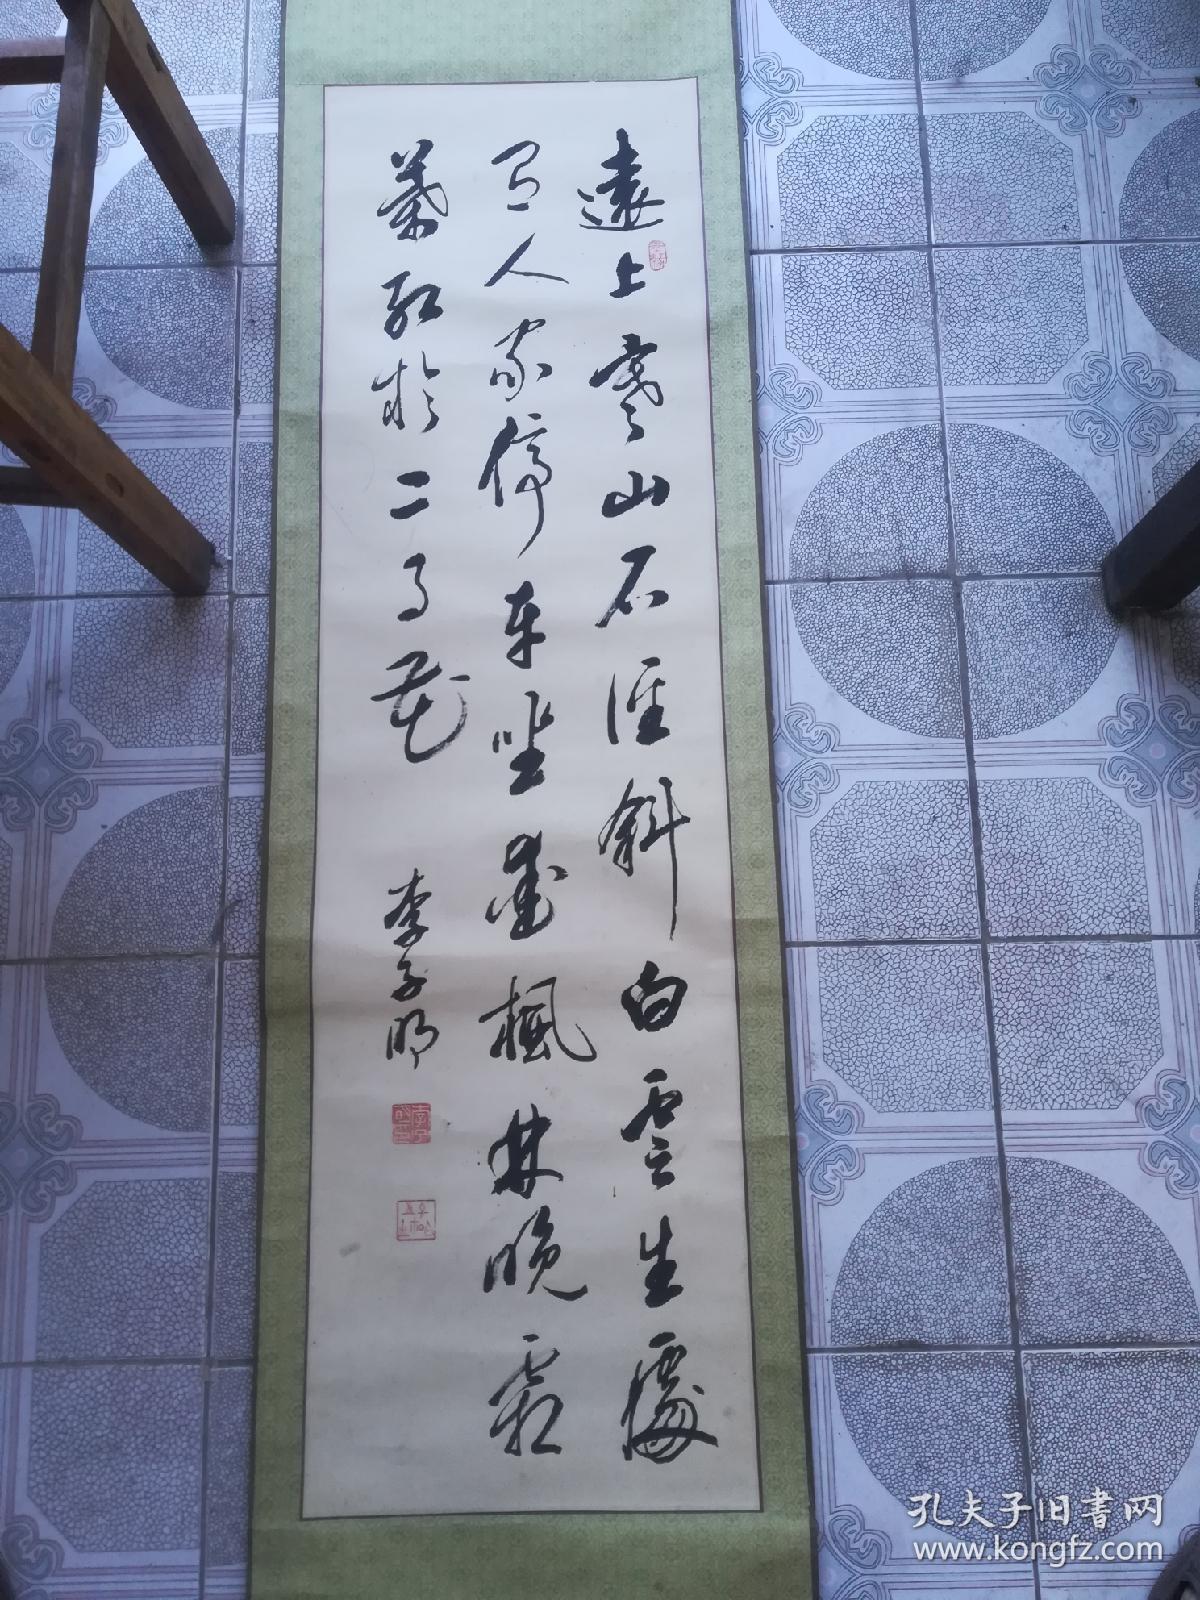 遠上寒山石径斜白雲生處
有人家停車坐愛楓林晚霜
葉紅於二月花
李子明
孔夫子旧書网
www.kongfz.com